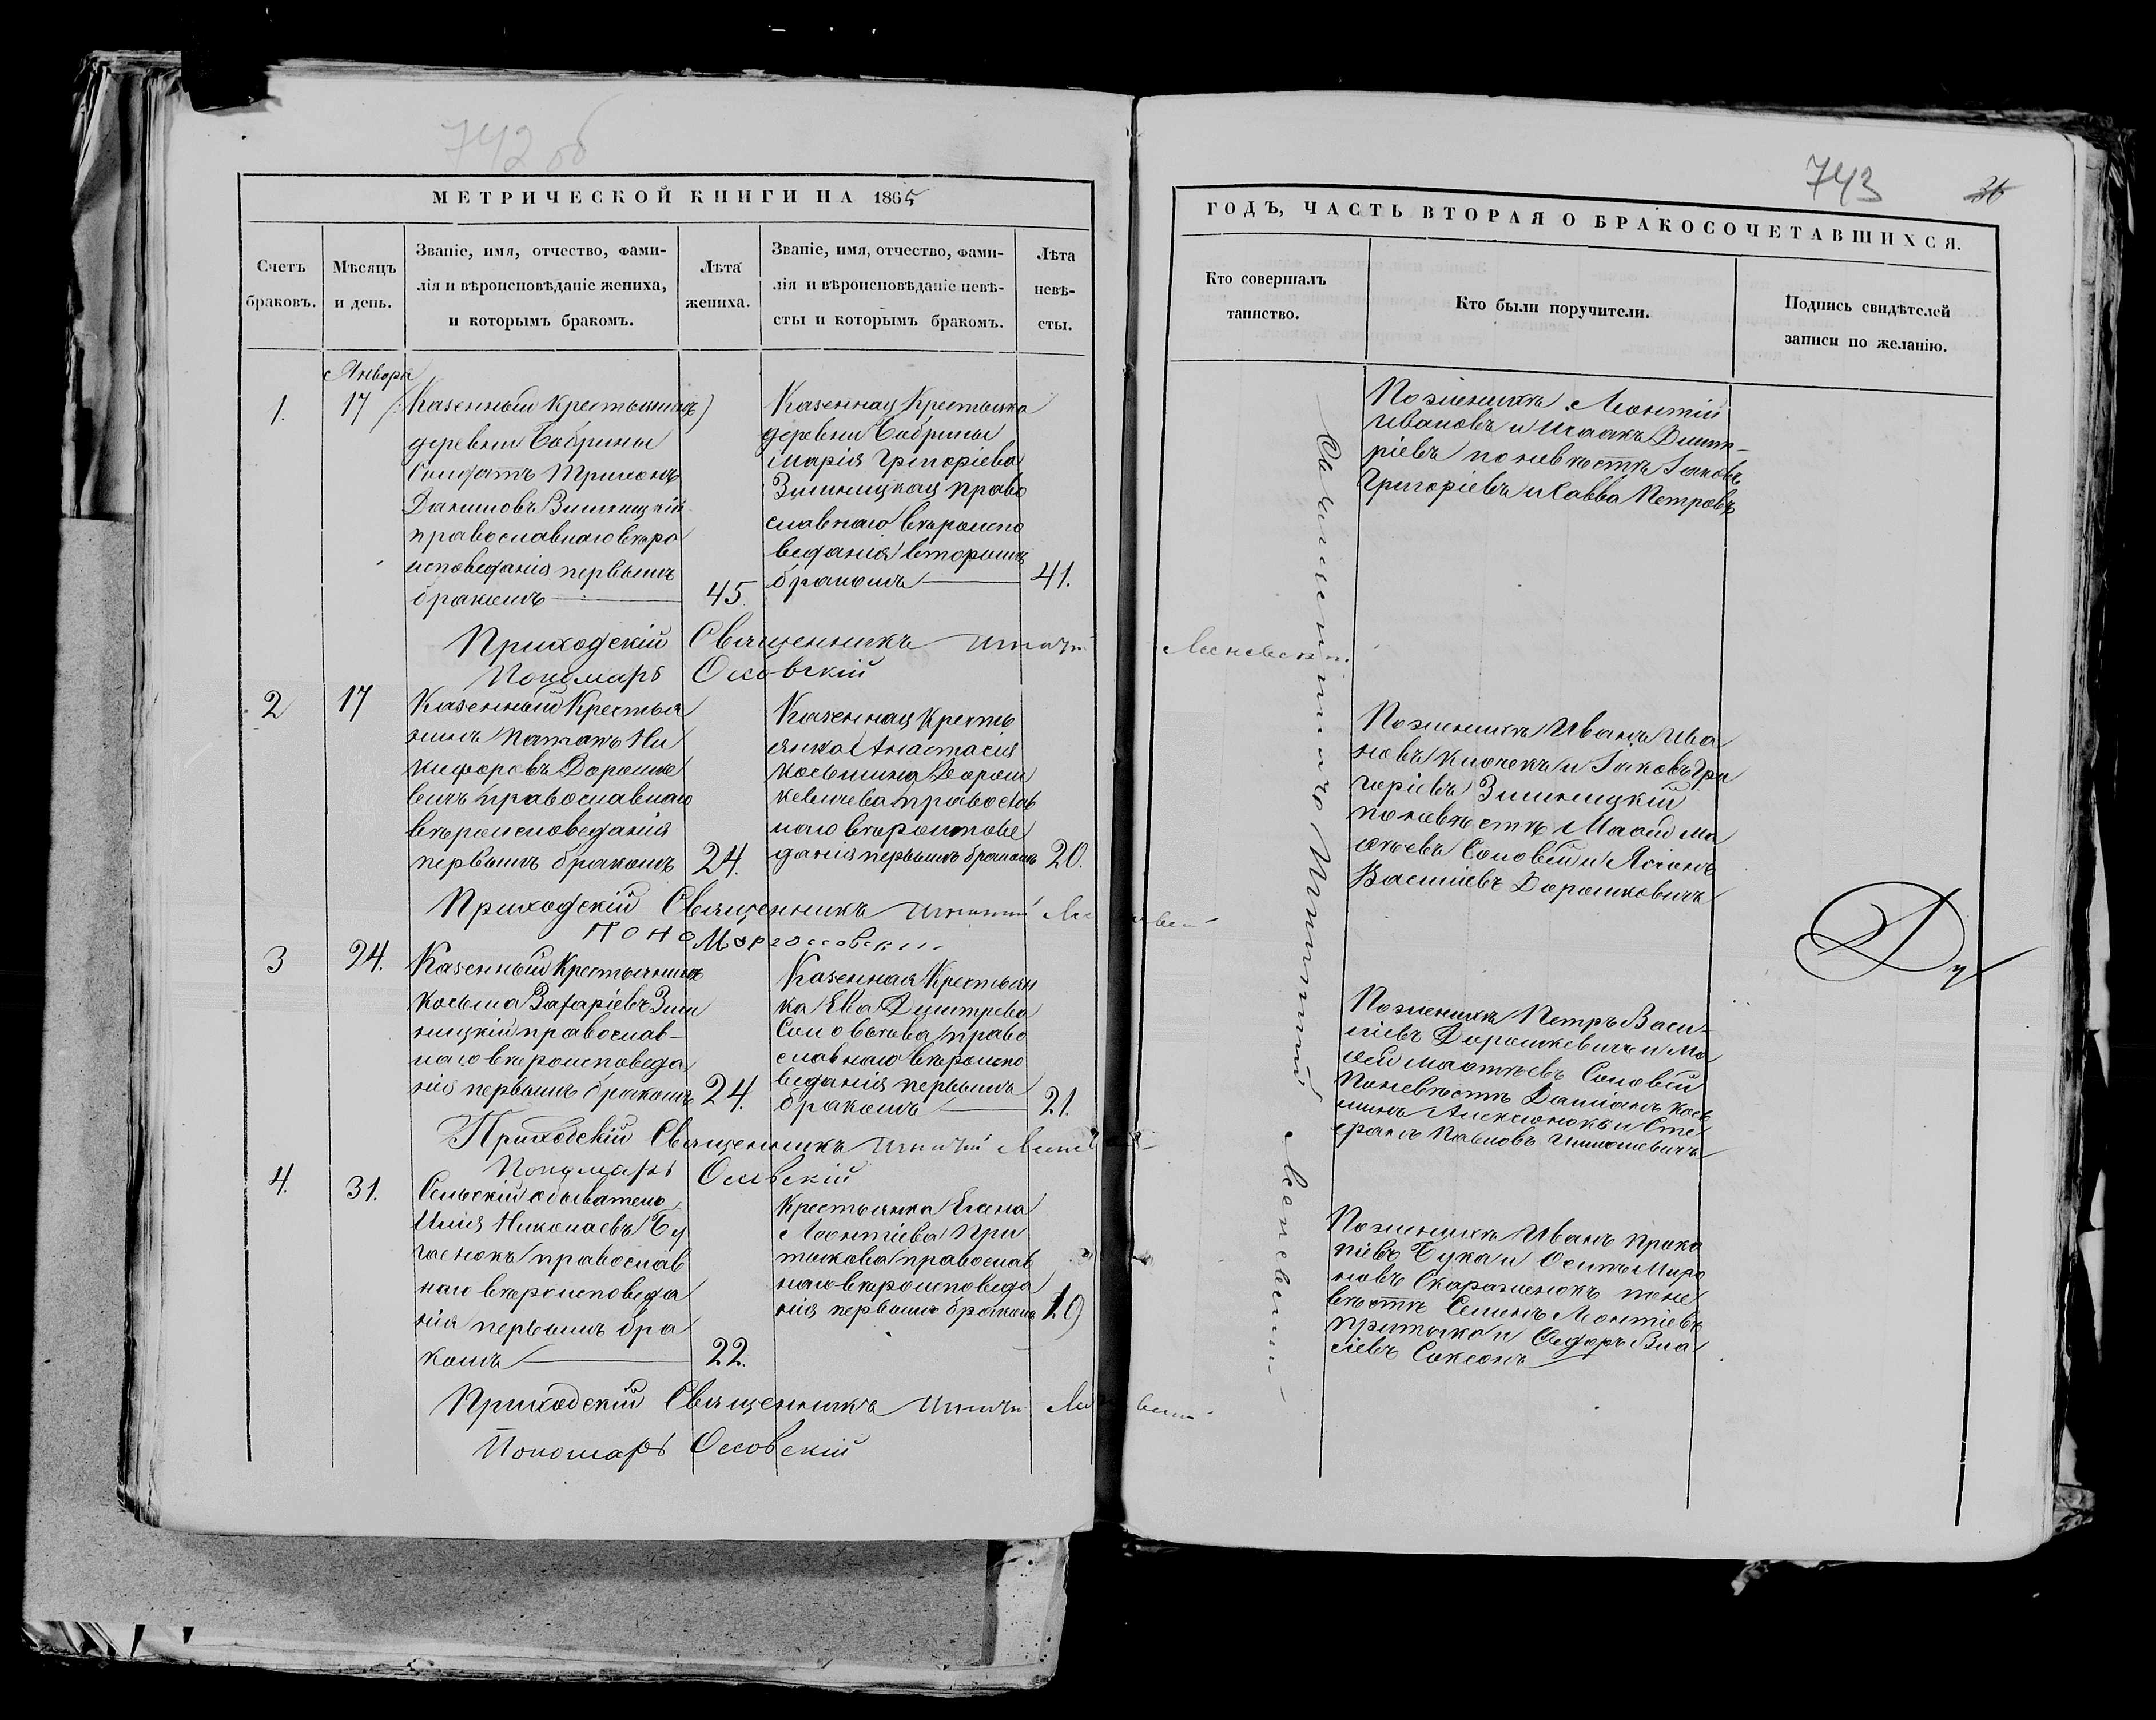 742 об
МЕТРИЧЕСКОЙ КНИГИ НА 1865
Счетъ
браковъ.
Мѣсяцъ
и день.
Званіе, имя, отчество, фами-
лія и вѣроисповѣданіе жениха,
и которымъ бракомъ.
Лѣта
жениха.
Званіе, имя, отчество, фами-
лія и вѣроисповѣданіе невѣ-
сты и которымъ бракомъ.
Лѣта
невѣ-
сты.
Января
1.
17
Казенный Крестьянинъ
деревни Бобрины
Данииловъ Зилиницкій
православнаго вѣро
исповеданія первымъ
бракомъ
45.
Казенная Крестьянка
деревни Бобрины
Марія Григоріева
Зилиницкая право
славнаго вѣроиспо
веданія вторымъ
бракомъ
41.
Приходскій Священникъ Игнатій
Пономарь Оссовскій
2
17
Казенный Крестья
нинъ Патапъ Ни
кифоровъ Дорошке
вичъ православнаго
вѣроисповеданія
первымъ бракомъ
24.
Казенная Кресть
янка Анастасія
Косьмина Дорош
кевичева православ
наго вѣроисповѣ
данія первымъ бракомъ
20.
Приходскій Священникъ Игнатій
Пономарь Оссовскій
3
24.
Казенный Крестьянинъ
Косьма Захаріевъ Зили
ницкій православ-
наго вѣроисповеда
нія первымъ бракомъ
24.
Казенная Крестьян
ка Ева Димитрева
Соловьева право
славнаго вѣроиспо
веданія первымъ
бракомъ
21.
Приходскій Священникъ Игнатій
Пономарь Оссовскій
4.
31.
Сельскій обыватель
Илія Николаевъ Бу
православ
наго вѣроисповеда
нія первымъ бра
комъ
22.
Крестьянка Елена
Леонтіева При
тыкова православ
наго вѣроисповеда
нія первымъ бракомъ
19
Приходскій Священникъ Игнатій
Пономарь Оссовскій
743
36
ГОДЪ, ЧАСТЬ ВТОРАЯ О БРАКОСОЧЕТАВШИХСЯ.
Кто совершалъ
таинство.
Кто были поручители.
Подпись свидѣтелей
записи по желанію.
Священникъ Игнатій
По женихѣ Леонтій
Ивановъ и Исаакъ Димит-
ріевъ по невѣстѣ Іаковъ
Григоріевъ и Савва Петровъ
По женихѣ Иванъ Ива
новъ Клочекъ и Іаковъ Гри
горіевъ Зилиницкій
по невѣстѣ Моисей Ма
Соловей и
Василіевъ Дорошковичъ
По женихѣ Петръ Васи-
ліевъ Дорошкевичъ и Мо
исей Соловей
По невѣстѣ Даміанъ Кось
минъ Алексіюкъ и Сте
фанъ Павловъ
По женихѣ Иванъ Проко
піевъ Бука и Осипъ Миро
новъ по не
вѣстѣ Семенъ Леонтіевъ
Притыка и Ѳедоръ